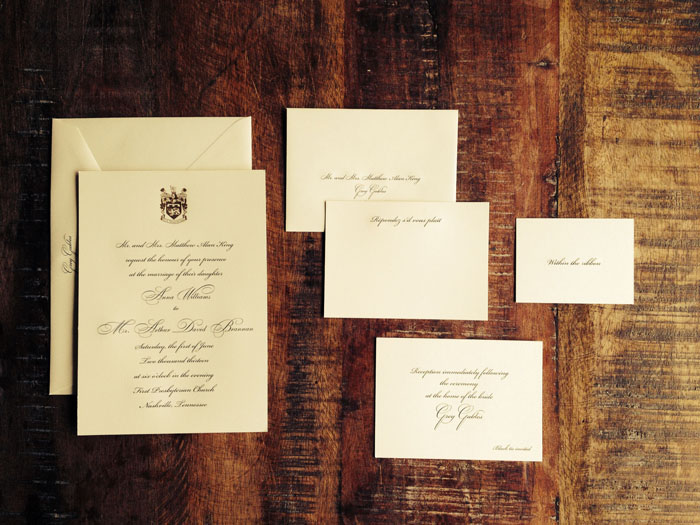 Mr. and Mrs. Matthew Alan King
request the honour of your presence
at the marriage of their daughter
Anna Williams
to
Mr. Arthur David Brannan
Saturday, the first of June
Two thousand thirteen
at six o'clock in the evening
First Presbyterian Church
Nashville, Tennessee
Grey Gables
Mr. and Mrs. Matthew Alan King
Grey Gables
Répondez s'il vous plaît
Within the ribbon
Reception immediately following
the ceremony
at the home of the bride
Grey Gables